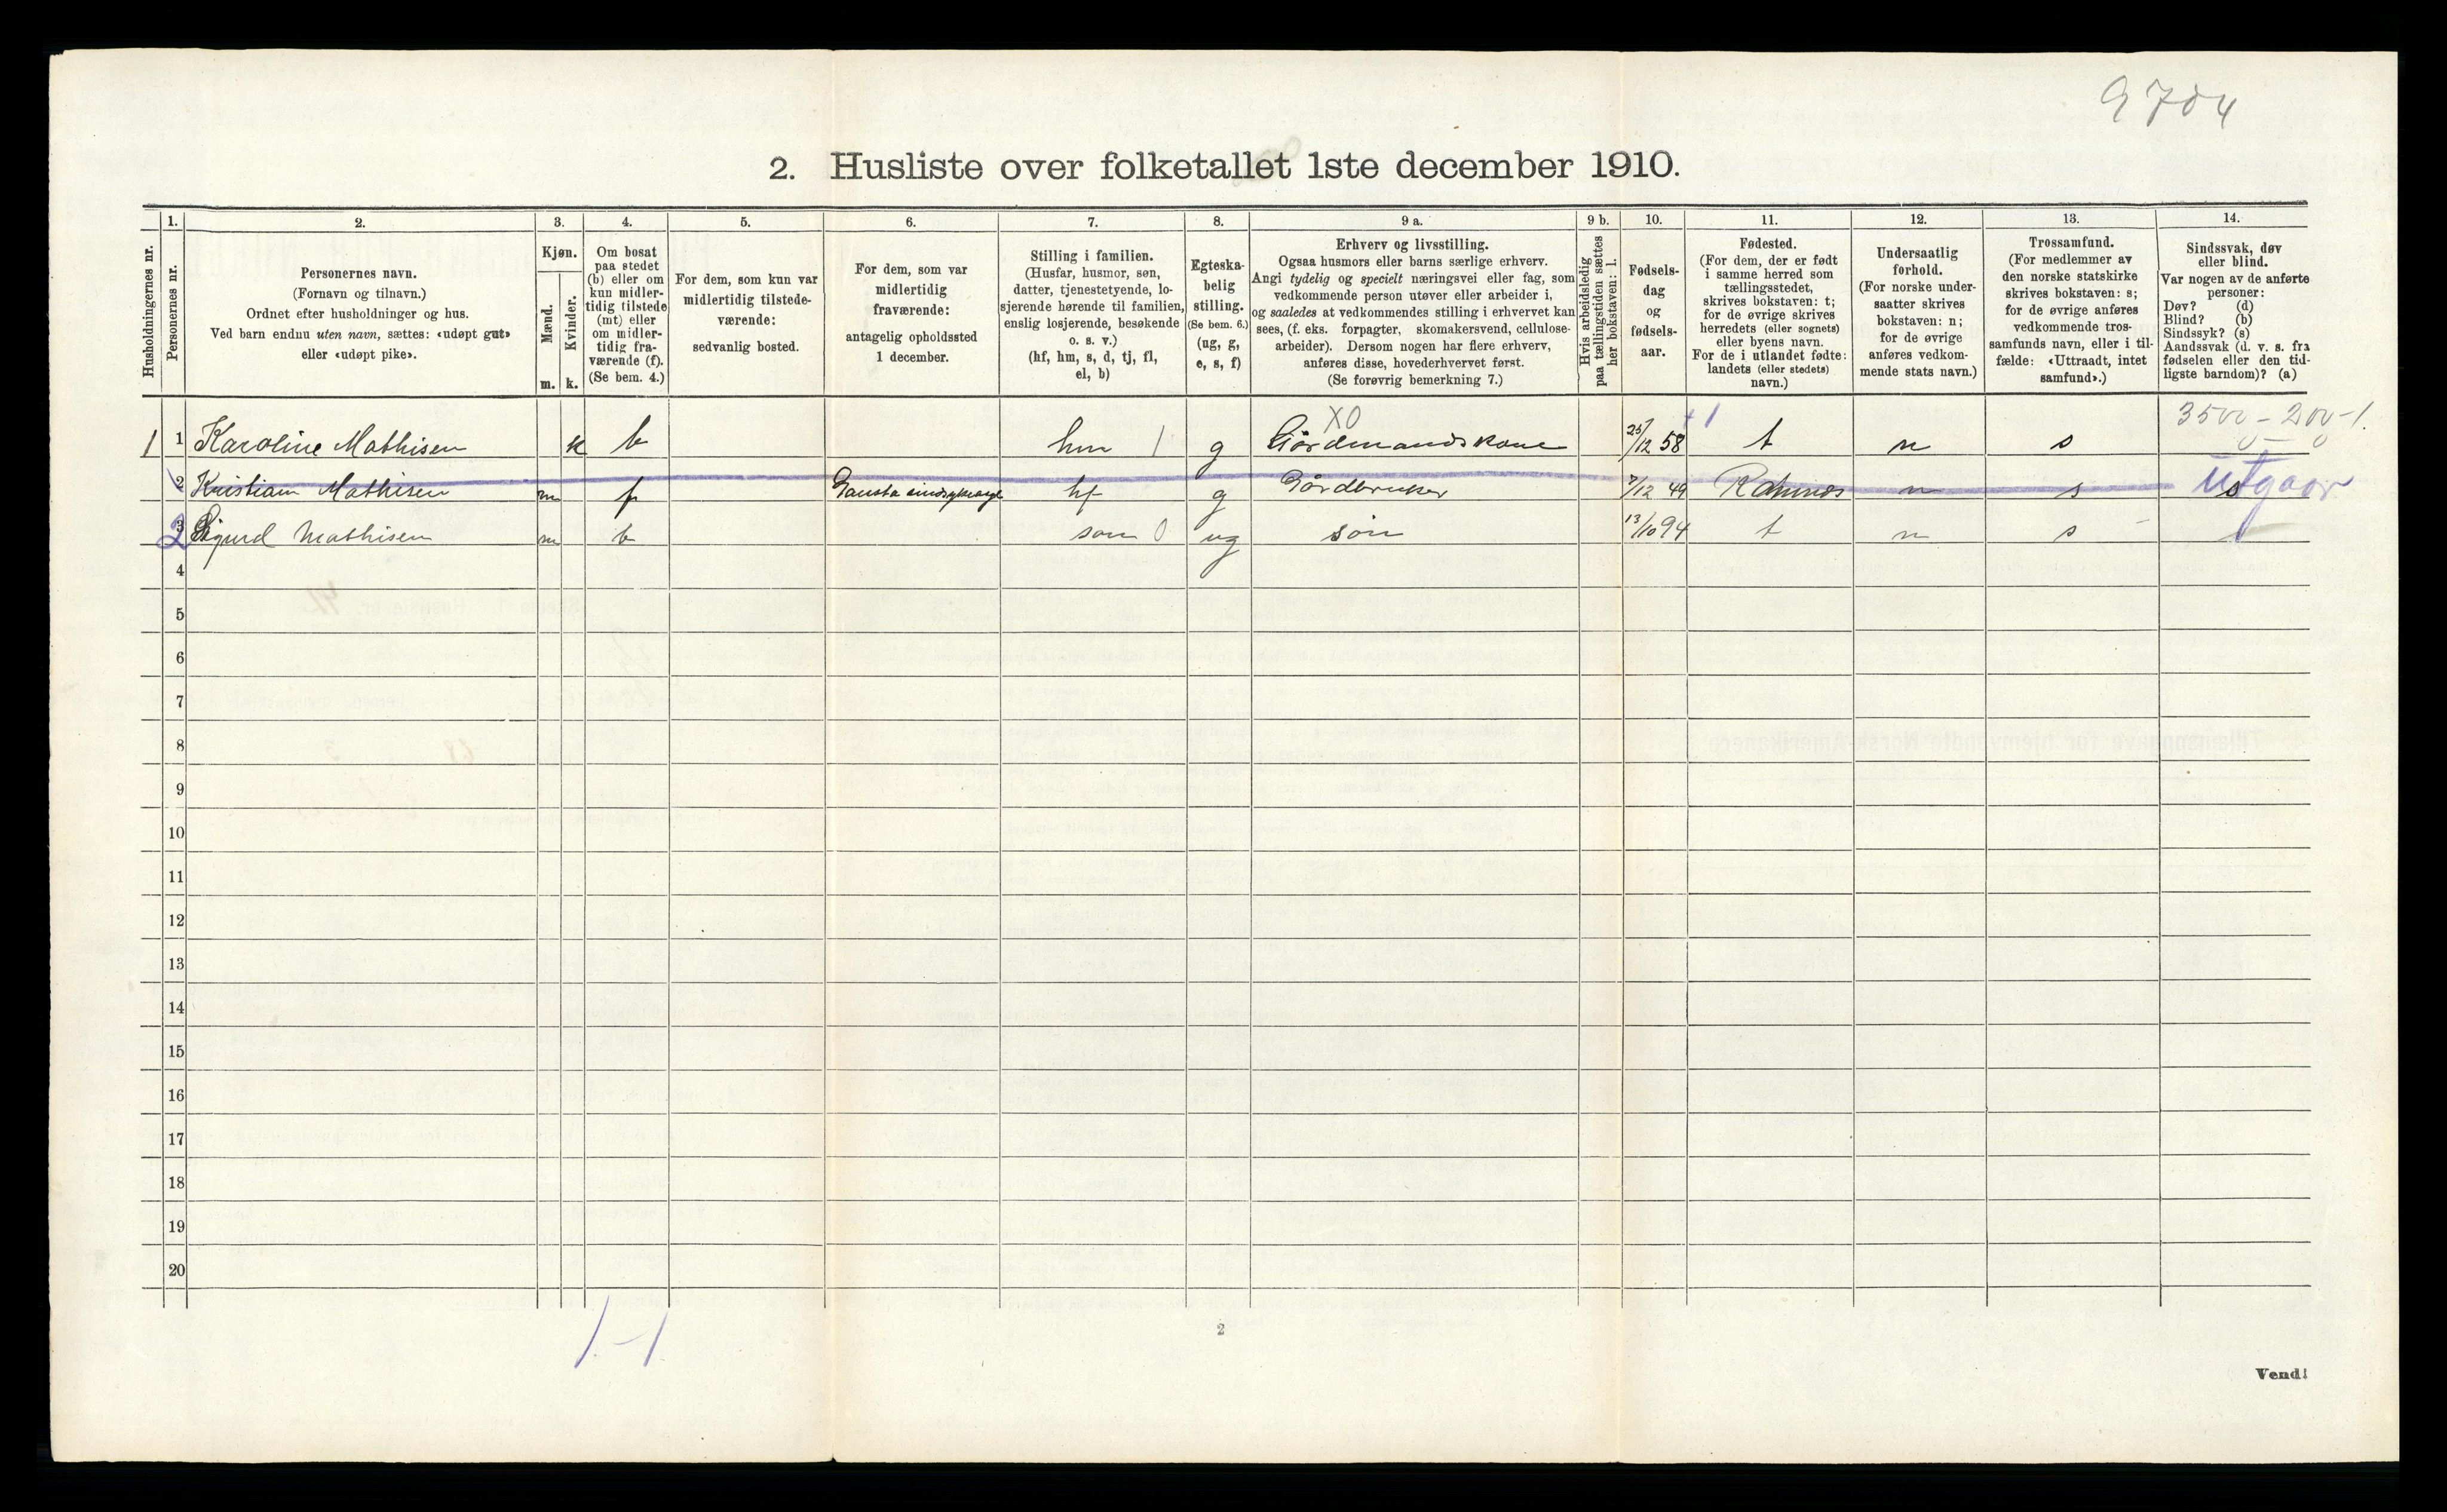 9704
2. Husliste over folketallet 1ste december 1910.
Husholdningernes nr.
1.
Personernes nr.
2.
Personernes navn.
(Fornavn og tilnavn.)
Ordnet efter husholdninger og hus.
Ved barn endnu uten navn, sættes: «udøpt gut»
eller «udøpt pike».
3.
Kjøn.
Mænd.
m.
Kvinder.
k.
4.
Om bosat
paa stedet
(b) eller om
kun midler-
tidig tilstede
(mt) eller
om midler-
tidig fra-
værende (f).
(Se bem. 4.)
5.
For dem, som kun var
midlertidig tilstede-
værende:
sedvanlig bosted.
6.
For dem, som var
midlertidig
fraværende:
antagelig opholdssted
1 december.
7.
Stilling i familien.
(Husfar, husmor, søn,
datter, tjenestetyende, lo-
sjerende hørende til familien,
enslig losjerende, besøkende
o. s. v.)
(hf, hm, s, d, tj, fl,
el, b)
8.
Egteska-
belig
stilling.
(Se bem. 6.)
(ug, g,
e, s, f)
9 a.
Erhverv og livsstilling.
Ogsaa husmors eller barns særlige erhverv.
Angi tydelig og specielt næringsvei eller fag, som
vedkommende person utøver eller arbeider i,
og saaledes at vedkommendes stilling i erhvervet kan
sees, (f. eks. forpagter, skomakersvend, cellulose-
arbeider). Dersom nogen har flere erhverv,
anføres disse, hovederhvervet først.
(Se forøvrig bemerkning 7.)
9 b.
Hvis arbeidsledig
paa tællingstiden sættes
her bokstaven: l.
10.
Fødsels-
dag
og
fødsels-
aar.
11.
Fødested.
(For dem, der er født
i samme herred som
tællingsstedet,
skrives bokstaven: t;
for de øvrige skrives
herredets (eller sognets)
eller byens navn.
For de i utlandet fødte:
landets (eller stedets)
navn.)
12.
Undersaatlig
forhold.
(For norske under-
saatter skrives
bokstaven: n;
for de øvrige
anføres vedkom-
mende stats navn.)
13.
Trossamfund.
(For medlemmer av
den norske statskirke
skrives bokstaven: s;
for de øvrige anføres
vedkommende tros-
samfunds navn, eller i til-
fælde: «Uttraadt, intet
samfund».)
14.
Sindssvak, døv
eller blind.
Var nogen av de anførte
personer:
Døv? (d)
Blind? (b)
Sindssyk? (s)
Aandssvak (d. v. s. fra
fødselen eller den tid-
ligste barndom)? (a)
X0 +1 3500 - 200 - 1.
1 1 Karoline Mathisen k b hm 1 g Gårdmandskone 25/12 58 t n s
2 Kristian Mathisen m f Gausta hf g Gårdbruker 7/12 49 n s s utgaar
2 3 Sigurd Mathisen m b søn 0 ug søn 13/10 94 t n s
4
5
6
7
8
9
10
11
12
13
14
15
16
17
18
19
20
1-1
2
Vend!